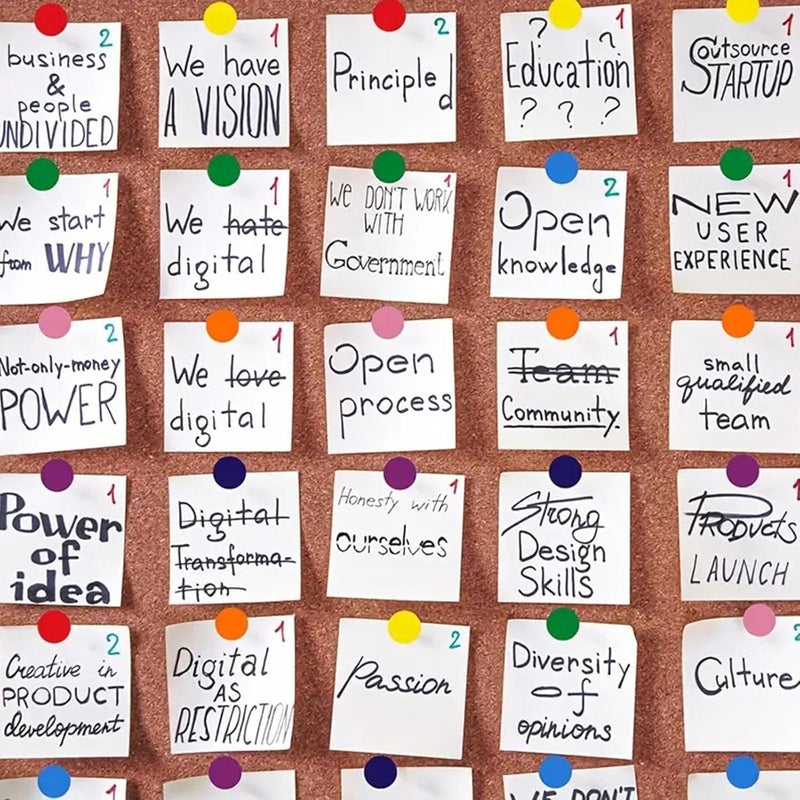 2
business
&
people
UNDIVIDED
1
We have
A VISION
2
Principled
1
? ?
Education
? ? ?
1
Outsource
STARTUP
1
We start
from WHY
1
We hate
digital
1
WE DON'T WORK
WITH
Government
2
Open
knowledge
1
NEW
USER
EXPERIENCE
2
Not-only-money
POWER
1
We love
digital
Open
process
1
Team
Community.
1
small
qualified
team
1
Power
of
idea
Digital
Transforma-
tion
1
Honesty with
ourselves
Strong
Design
Skills
1
PRODUCTS
LAUNCH
2
Creative in
PRODUCT
development
1
Digital
AS
RESTRICTION
2
Passion
Diversity
of
opinions
2
Culture
1
WE DON'T